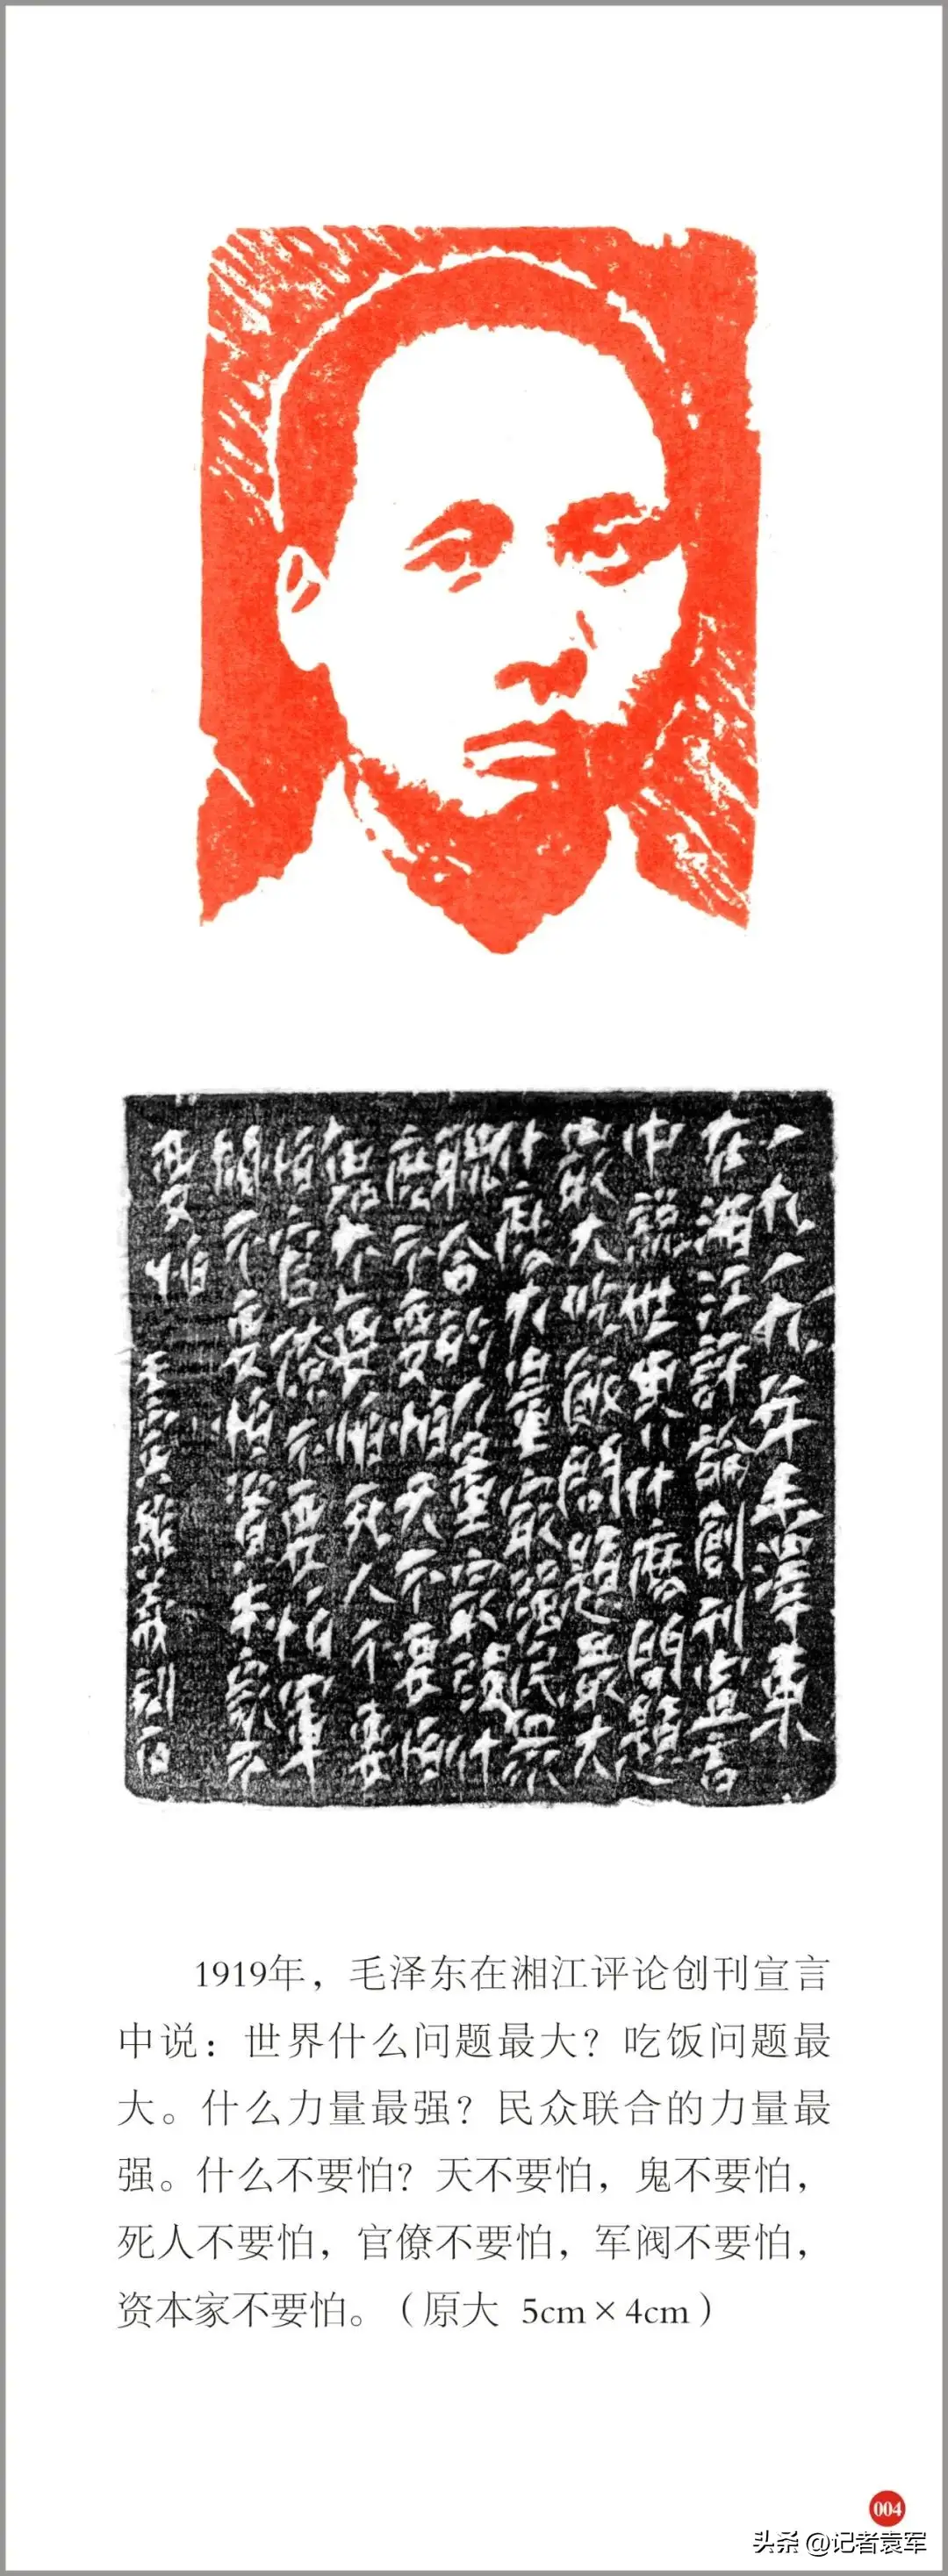 一九一九年毛澤東
在湘江評論創刊宣言
中說世界什麼問題
最大吃飯問題最大
什麼力量最強民衆
聯合的力量最強什
麼不要怕天不要怕
鬼不要怕死人不要
怕官僚不要怕軍
閥不要怕資本家不
要怕
刻石
1919年，毛泽东在湘江评论创刊宣言
中说：世界什么问题最大？吃饭问题最
大。什么力量最强？民众联合的力量最
强。什么不要怕？天不要怕，鬼不要怕，
死人不要怕，官僚不要怕，军阀不要怕，
资本家不要怕。（原大 5cm×4cm）
004
头条 @记者袁军